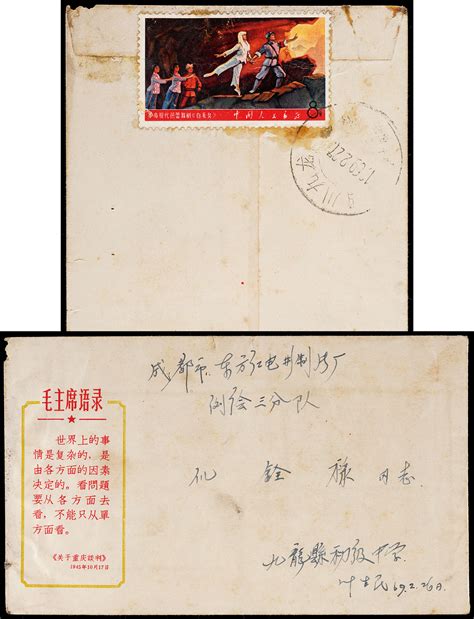 革命现代芭蕾舞剧《白毛女》
中国人民邮政
8
四川九龙
1969.2.27
成都市.东方红电影制片厂
三分队
同志
毛主席语录
世界上的事
情是复杂的，是
由各方面的因素
决定的。看問題
要从各方面去
看，不能只从單
方面看。
《关于重庆談判》
1945年10月17日
九龍縣初级中学
69.2.26日